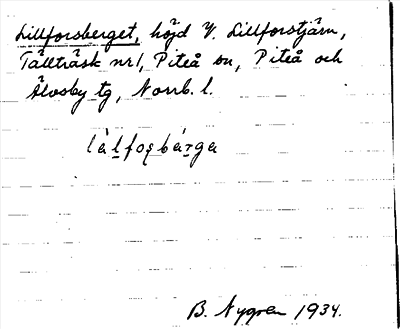 Lillforsberget, höjd V. Lillforstjärn,
Tällträsk nr 1, Piteå sn, Piteå och
Älvsby tg, Norrb. l.
B. Nygren 1934.